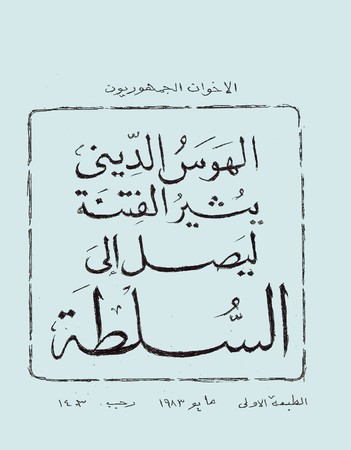 الاخوان الجمهوريون
الهَوَسُ الدِّيني
يثيرُ الفِتنَة
ليَصل إلىَ
السُّلطَة
الطبعة الاولى مايو ١٩٨٣ رجب ١٤٠٣